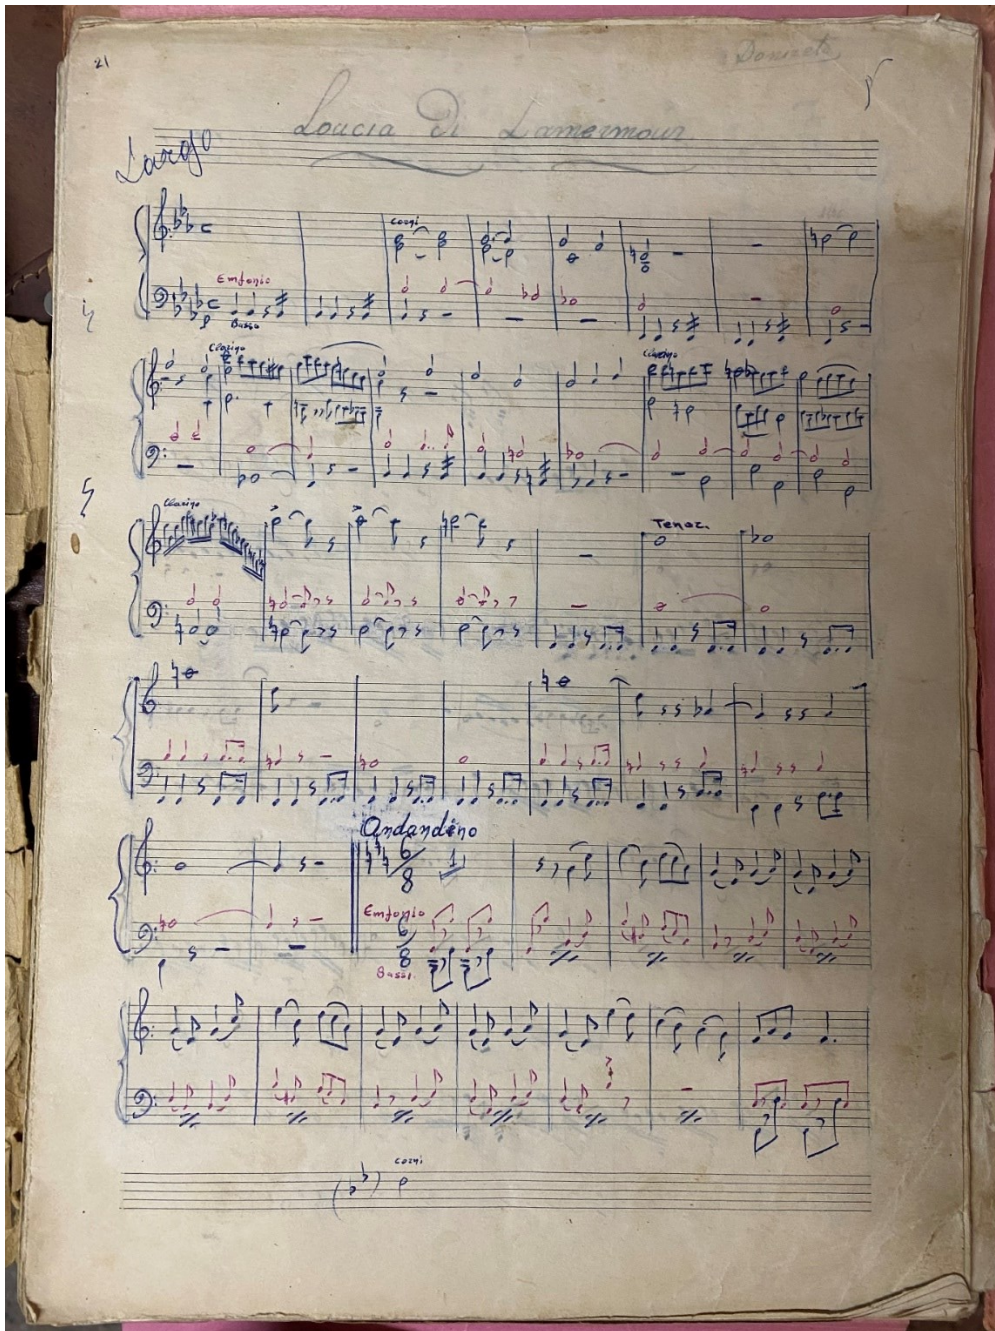 21
Donizete
Loucia Di Lamermour
Largo
Corni
Emfonio
Basso
Clarino
Clarino
Clarino
Tenor.
Andandino
6
8
Emfonio
6
8
Bassi.
corni